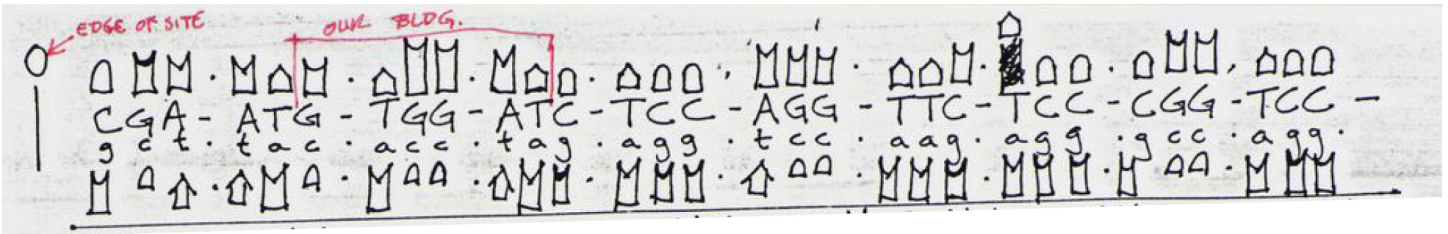 EDGE OF SITE
OUR BLDG.
CGA - ATG - TGG - ATC - TCC - AGG - TTC - TCC - CGG - TCC -
gct · tac · acc · tag · agg · tcc · aag · agg · gcc · agg ·